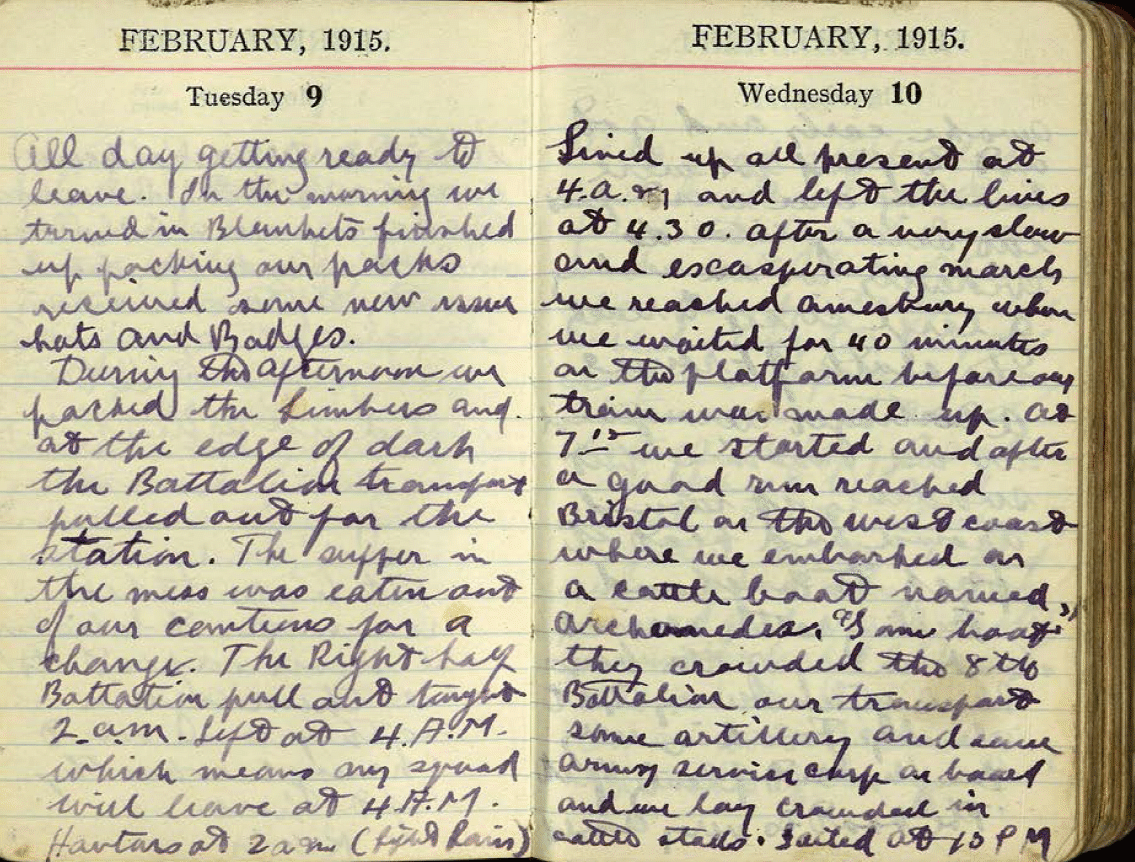 FEBRUARY, 1915.
Tuesday 9
All day getting ready to
leave. In the morning we
turned in Blankets finished
up packing our packs
received some new issue
hats and Badges.
During the afternoon we
packed the Limbers and
at the edge of dark
the Battalion transport
pulled out for the
station. The supper in
the mess was eaten out
of our canteens for a
change. The Right half
Battation pull out tonight
2 a.m. Left at 4. A.M.
which means my squad
will leave at 4 A.M.
at 2 am (Light Rain)
FEBRUARY, 1915.
Wednesday 10
Lined up all present at
4.a.m and left the lines
at 4.30. after a very slow
and escasperating march
we reached amesbury when
we waited for 40 minutes
on the platform before our
train was made up. at
7 15 we started and after
a good run reached
Bristol on the west coast
where we embarked on
a cattle boat named,
Archemedes. boat
they crowded the 8th
Battalion our transport
some artillery and some
army service corp on board
and we lay crowded in
cattle stalls. Sailed at 10 PM